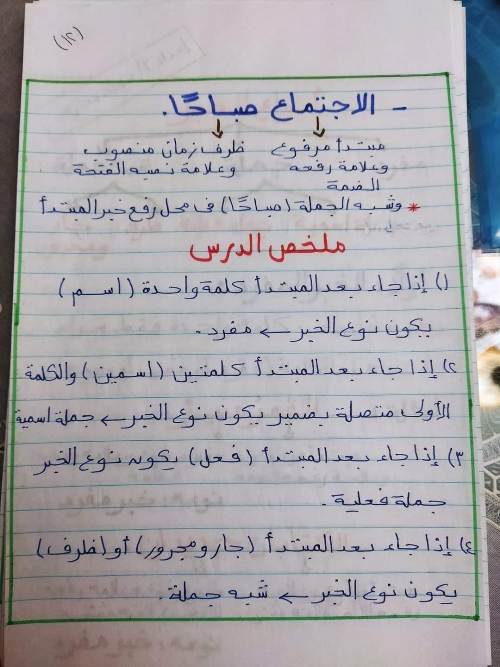 (١٢)
- الاجتماع صباحًا.
مبتدأ مرفوع ظرف زمان منصوب
وعلامة رفعه وعلامة نصبه الفتحة
الضمة
* وشبه الجملة (صباحًا) فى محل رفع خبر المبتدأ
ملخص الدرس
١) إذا جاء بعد المبتدأ كلمة واحدة (اسم)
يكون نوع الخبر ← مفرد.
٢) إذا جاء بعد المبتدأ كلمتين (اسمين) والكلمة
الأولى متصلة بضمير يكون نوع الخبر ← جملة اسمية
٣) إذا جاء بعد المبتدأ (فعل) يكون نوع الخبر
جملة فعلية.
٤) إذا جاء بعد المبتدأ (جار ومجرور) أو (ظرف)
يكون نوع الخبر ← شبه جملة.